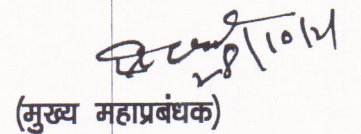 28/10/21
(मुख्य महाप्रबंधक)